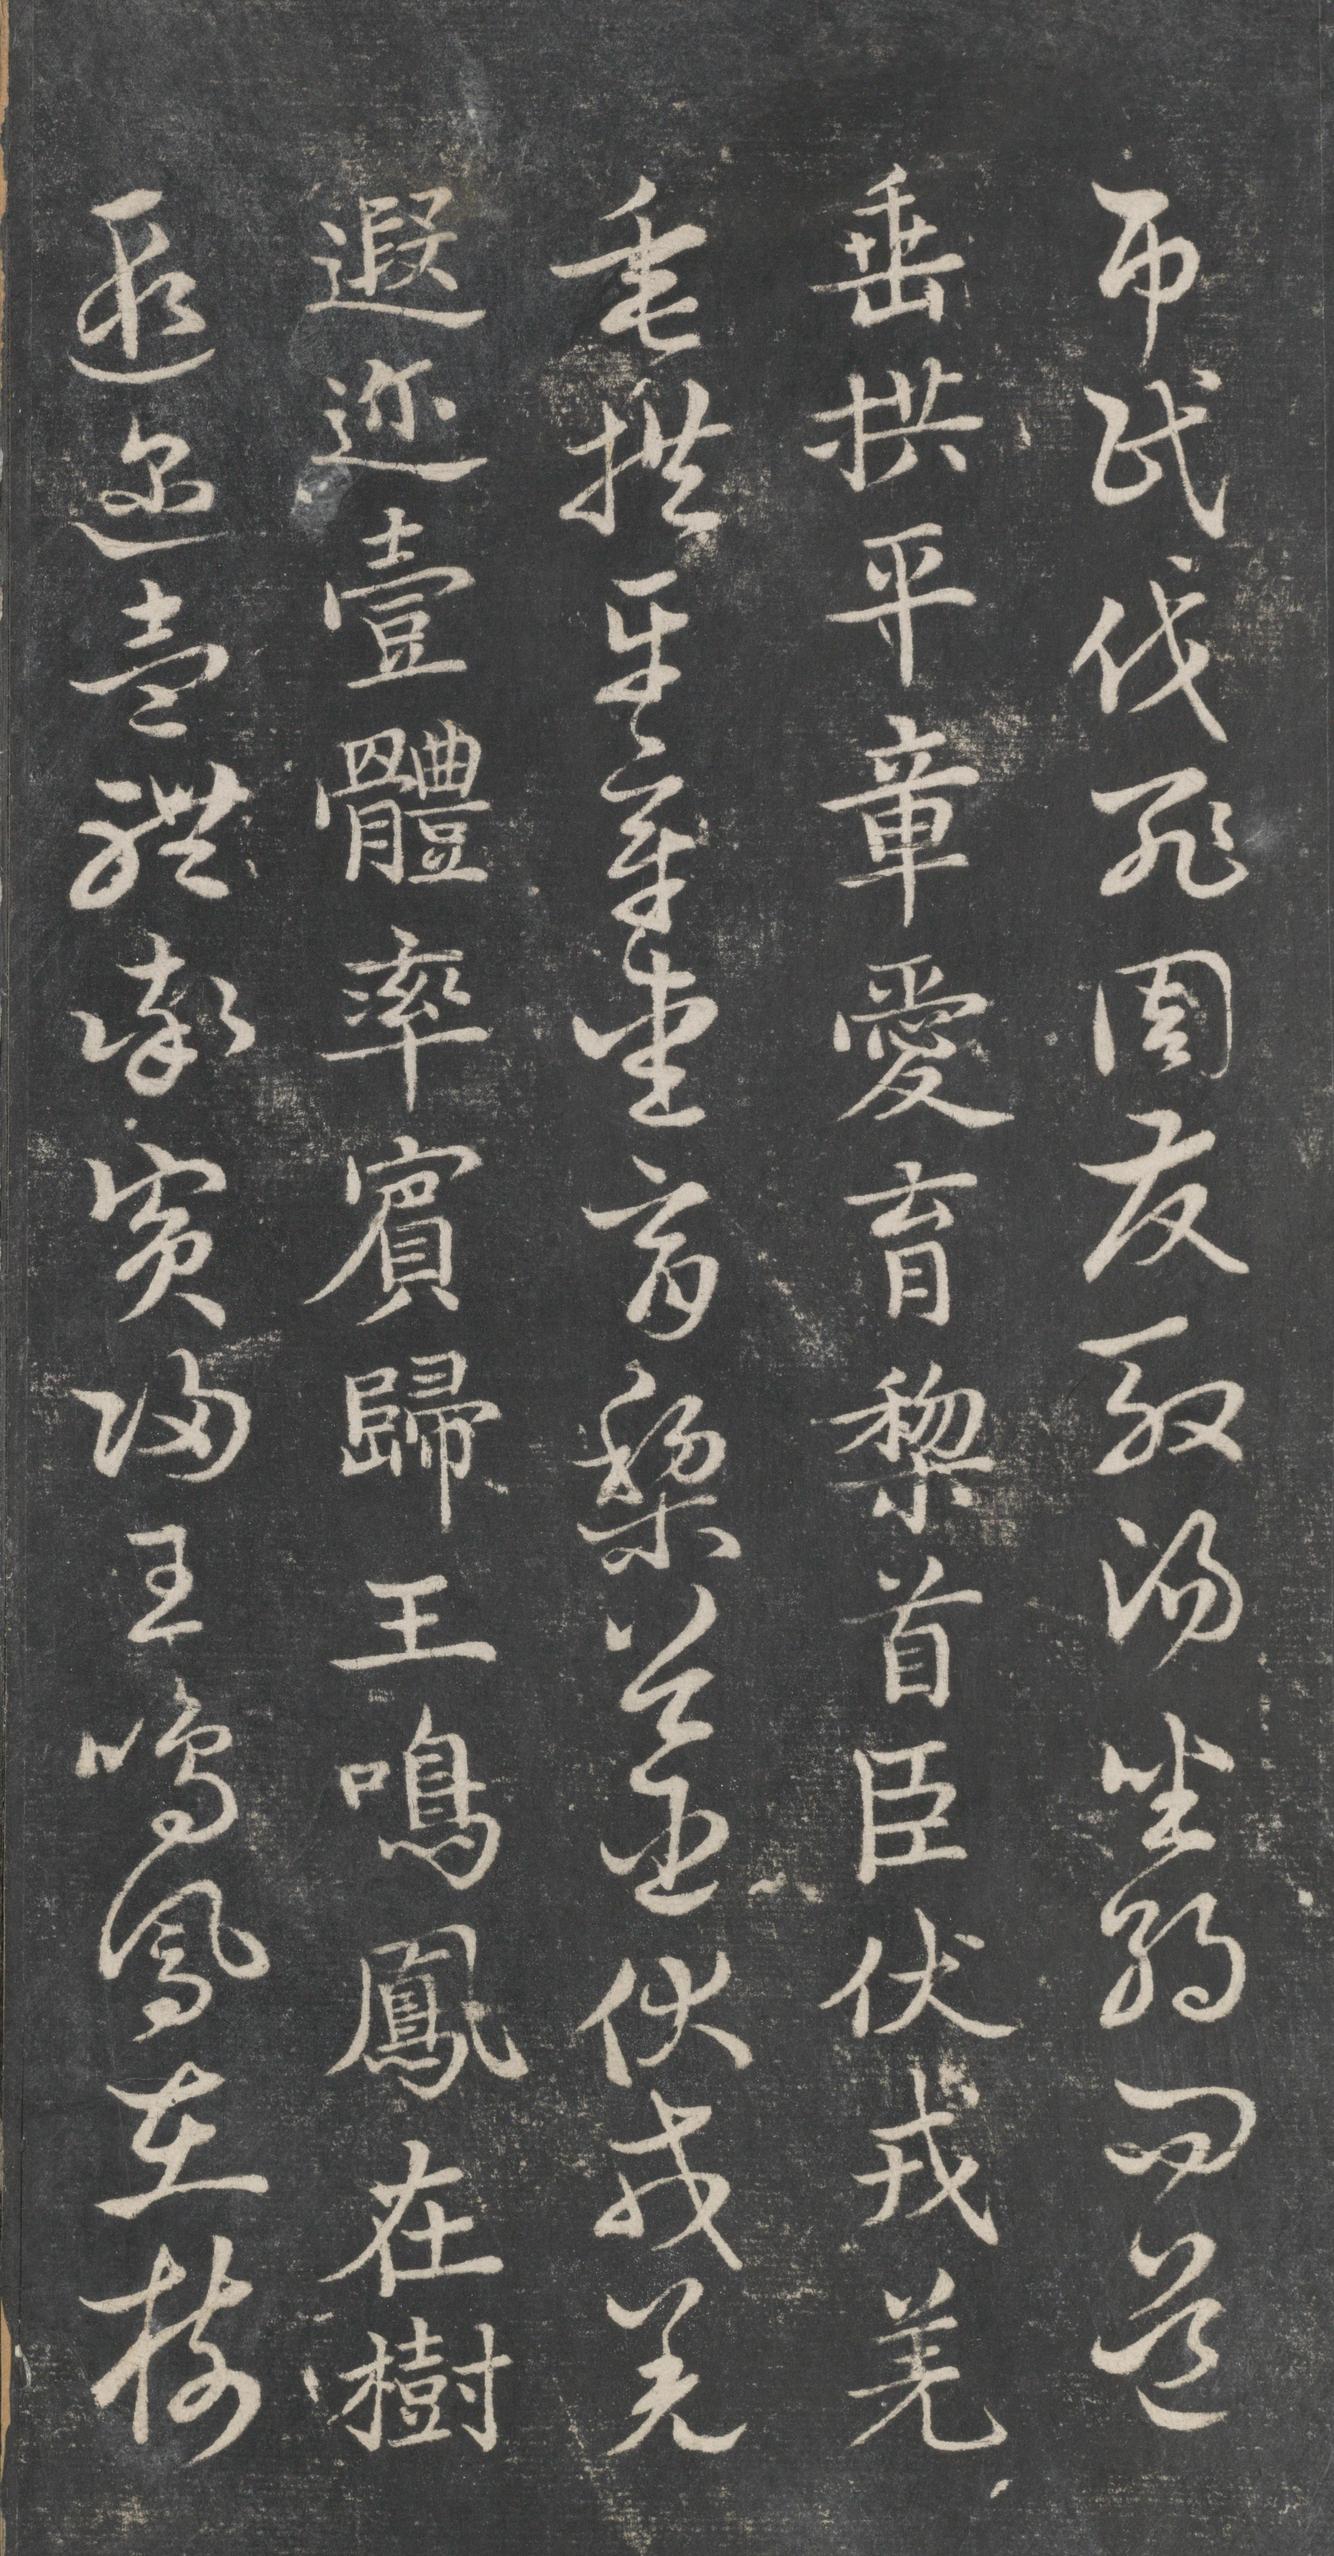 弔民伐罪周發殷湯坐朝問道
垂拱平章愛育黎首臣伏戎羌
垂拱平章愛育黎首臣伏戎羌
遐迩壹體率賓歸王鳴鳳在樹
遐迩壹體率賓歸王鳴鳳在樹